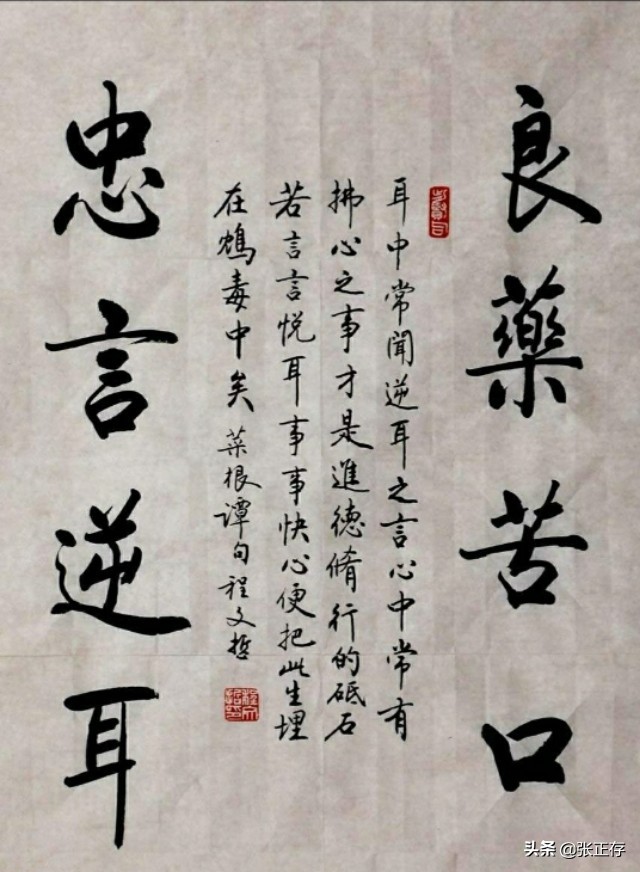 良藥苦口
耳中常聞逆耳之言心中常有
拂心之事才是進德脩行的砥石
若言言悦耳事事快心便把此生埋
在鴆毒中矣 菜根谭句程文哲
忠言逆耳
头条 @张正存